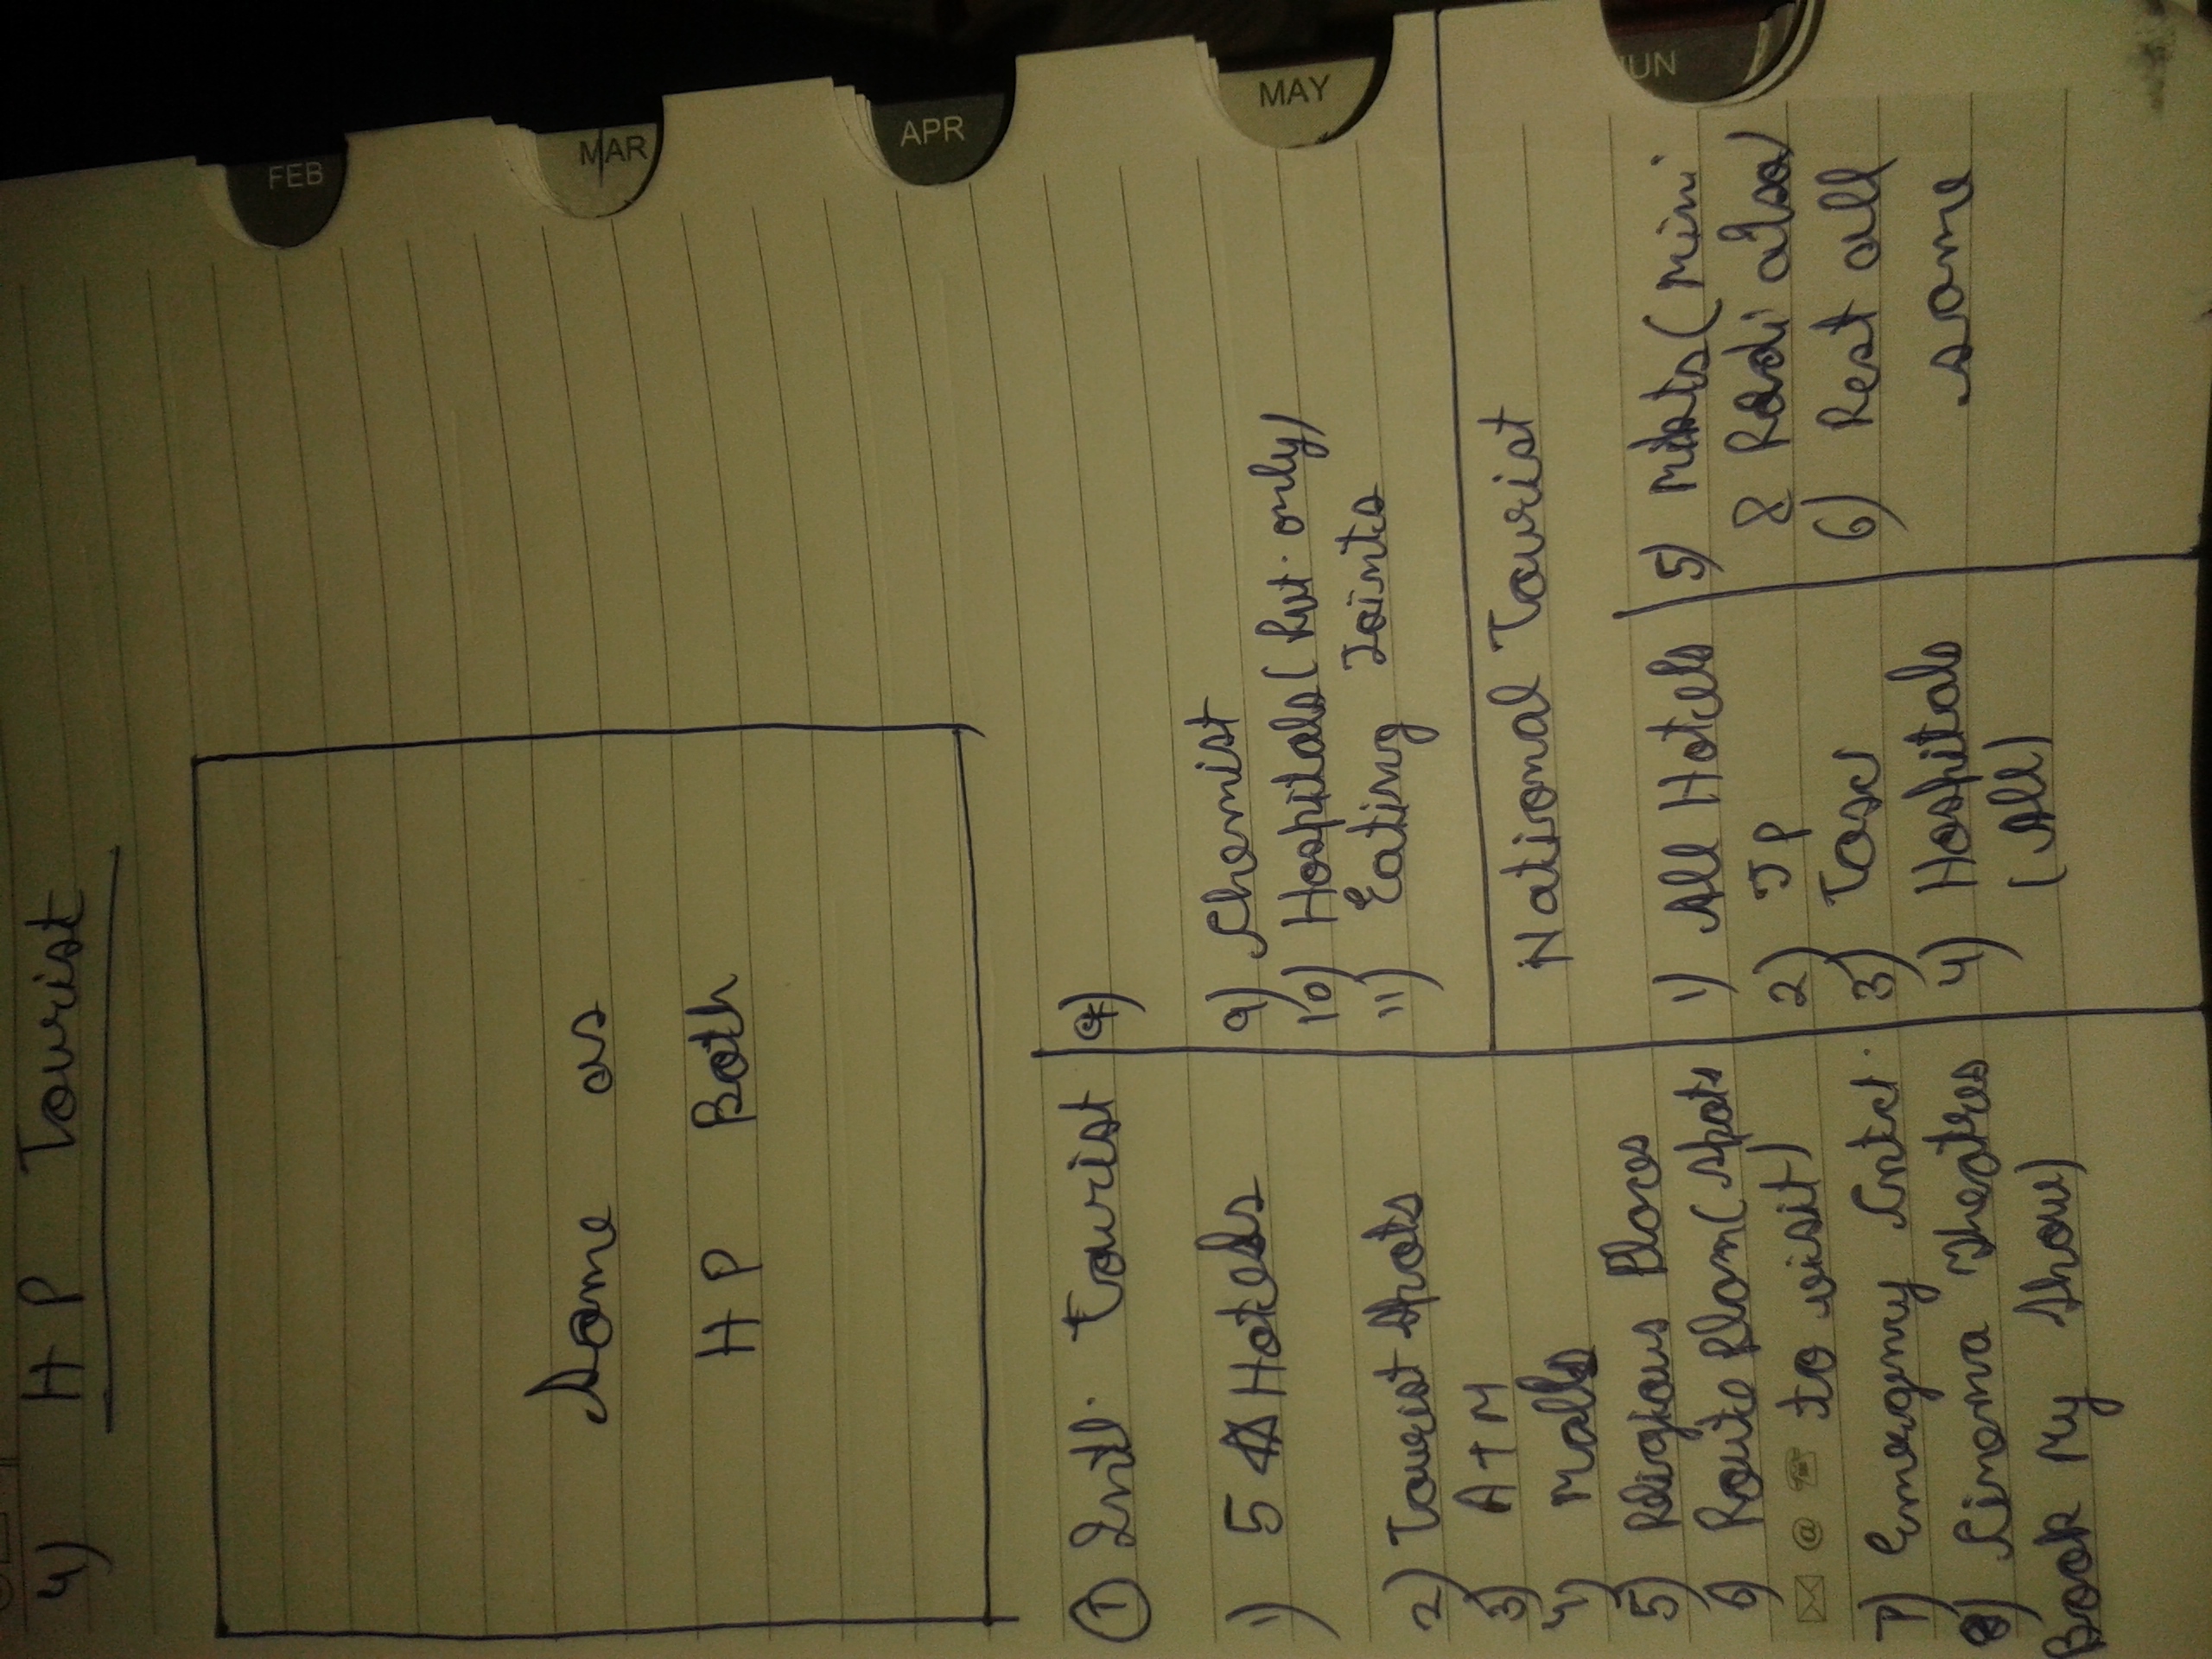 4) H P Tourist
Same as
H P Both
① Intl. Tourist
1) 5 Hotels
2) Tourist Spots
3) ATM
4) Malls
5) Religious Places
6) Route Plan (Spots
to visit)
7) Emergency Cntct.
8) Cinema Theatres
Book My Show)
9)
9) Chemist
10) Hospitals (Pvt. only)
11) Eating Joints
National Tourist
1) All Hotels
2) TP
3) Taxi
4) Hospitals
(All)
5) (Mini
& Radi also)
6) Rest all
same
FEB
MAR
APR
MAY
JUN